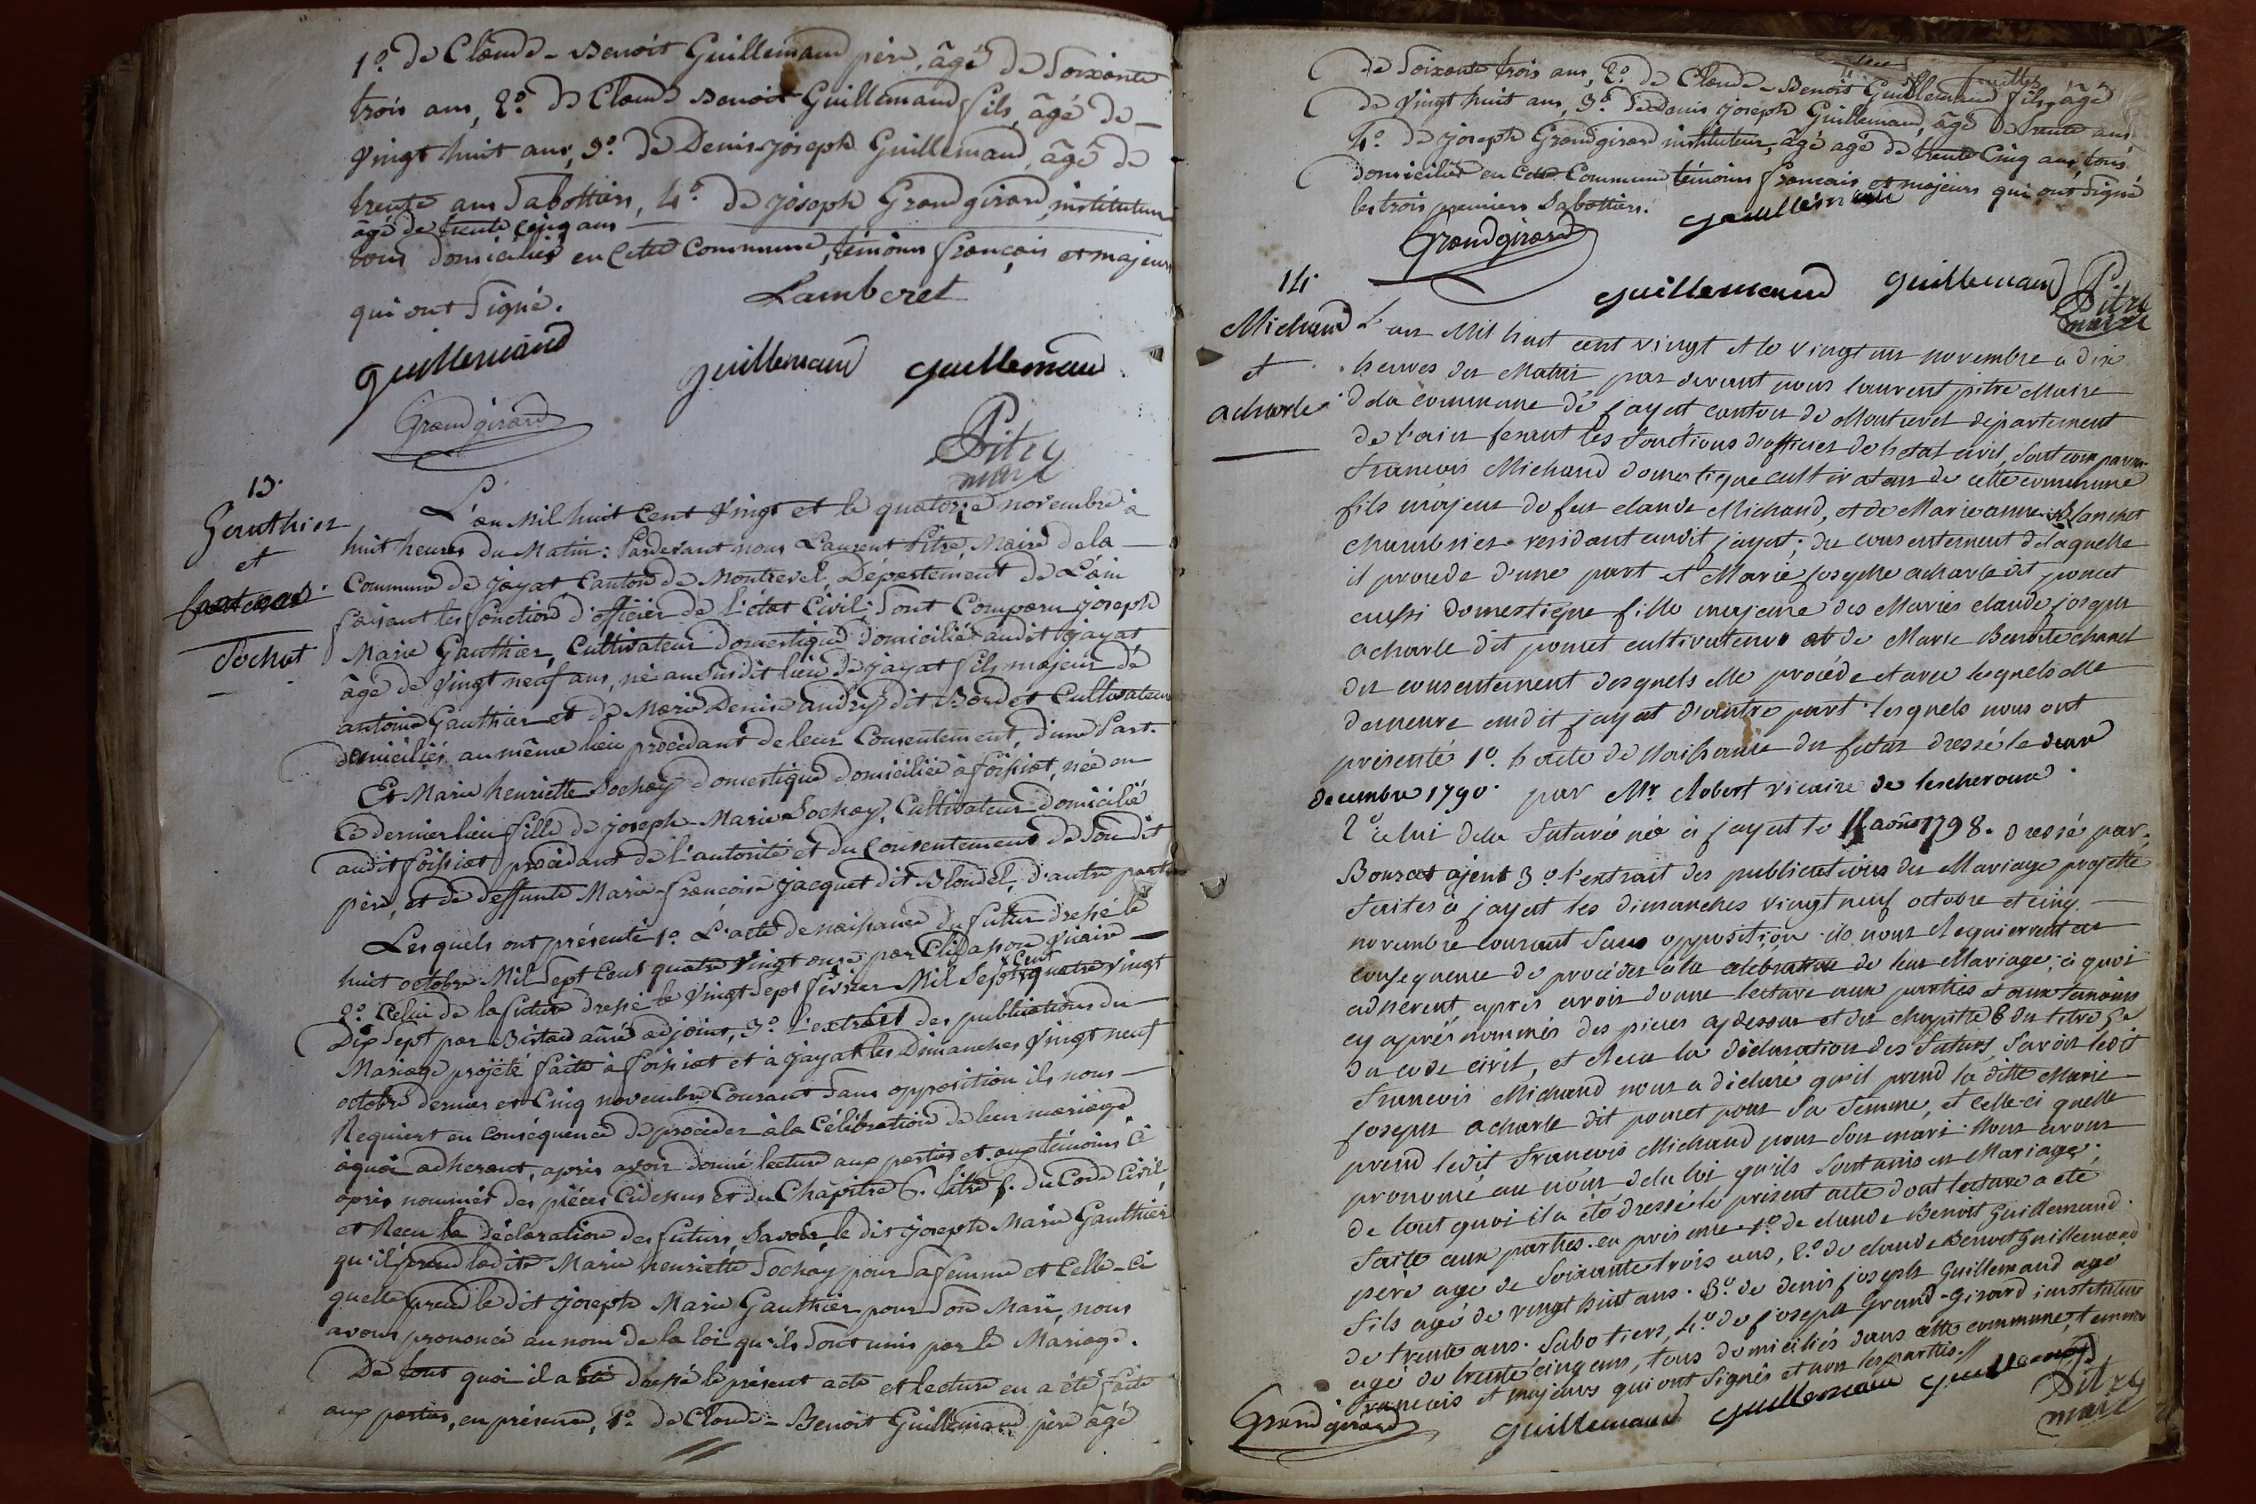 1.° de Claude-Benoit Guillemaud père, âgé de Soixante
trois ans, 2.° de Claude Benoit Guillemaud fils, âgé de
vingt huit ans, 3.° de Denis-joseph Guillemaud, âgé de
trente ans Sabottiers, 4.° de joseph Grandgirard, instituteur
âgé de trente cinq ans
tous domiciliés en Cette Commune, témoins français et majeurs
qui ont Signé.
Lamberet
guillemaud
guillemaud guillemaud
Grandgirard
Pitre
maire
13.
Gauthier
et
Sochat
L'an Mil huit Cent Vingt et le quatorze novembre à
huit heures du Matin: Pardevant nous Laurent Pitre, Maire de la
Commune de Jayat Canton de Montrevel, Département de L'ain
faisant les fonctions d'officier de L'état Civil: Sont Comparu joseph
Marie Gauthier, Cultivateur domestique domicilié audit Jayat
âgé de Vingt neuf ans, né au Susdit lieu de Jayat fils majeur de
antoine Gauthier et de Marie Denise audry dit Bordet Cultivateurs
domiciliés au même lieu procédant de leur Consentement, d'une Part.
Et Marie henriette Sochay domestique domiciliée à foissiat, née en
Ce dernier lieu fille de joseph-Marie Sochay, Cultivateur domicilié
audit foissiat procédant de l'autorité et du Consentement de Son dit
père, et de deffunte Marie-francoise jacquet dit Blondel, d'autre part
Lesquels ont présenté 1.° L'acte de naissance du futur dressé le
huit octobre Mil Sept Cent quatre Vingt onze par Vicaire
2.° Celui de la future dressé le Vingt Sept février Mil Sept Cent quatre vingt
Dix Sept par aîné adjoint, 3.° L'extrait des publications du
Mariage projetté faite à foissiat et à Jayat les Dimanches Vingt neuf
octobre dernier et Cinq novembre Courant Sans opposition ils nous
Requiert en Conséquence de procéder à la Célébration de leur mariage
à quoi adherant, après avoir donné lecture aux parties et aux témoins ci
après nommés des pièces Cidessus et du Chapitre 6. titre 5. du Code Civil,
et Reçu la déclaration des futurs Savoir, le dit joseph Marie Gauthier
qu'il prend ladite Marie henriette Sochay pour Sa femme et Celle-ci
quelle prend le dit joseph Marie Gauthier pour Son Mari, nous
avons prononcé au nom de la loi qu'ils Sont unis par le Mariage.
De tout quoi il a été dressé le présent acte et lecture en a été faite
aux parties, en présence, 1.° de Claude-Benoit Guillemaud père âgé
de Soixante trois ans, 2.° de Claude-Benoit Guillemaud fils, âgé
de Vingt huit ans, 3.° de denis joseph Guillemaud, âgé de trente ans
4.° de joseph Grandgirard instituteur, âgé agé de trente Cinq ans, tous
domiciliés en Cette Commune témoins français et majeurs qui ont Signé
les trois premiers Sabottiers.
guillemaud
Grandgirard
guillemaud guillemaud Pitre
maire
14.
Michaud
et
acharle
L'an Mil huit cent vingt et le vingt un novembre a dix
heures du Matin par devant nous laurent pitre Maire
de la commune de jayat canton de Montrevel departement
de l'ain fesant les fonctions d'officier de l'etat civil, sont comparu
francois Michaud domestique cultivateur de cette commune
fils majeur de feu claude Michaud, et de Marieanne Blanchet
residant audit jayat; du consentement de laquelle
il procede d'une part et Marie josephe acharle dit poncet
aussi domestique fille majeure des Mariés claude joseph
acharle dit poncet cultivateurs et de Marie Benoite chanel
du consentement desquels elle procéde et avec lesquels elle
demeure audit jayat d'autre part. lesquels nous ont
présenté 1.° l'acte de Naissance du futur dressé le deux
decembre 1790. par Mr. Robert vicaire de lescheroux.
2.° celui de la future né à jayat le 11 août 1798. dressé par
Bouzat ajent 3.° l'extrait des publications du Mariage projetté
faites à jayat les dimanches vingt neuf octobre et cinq
novembre courant sans opposition. ils nous Requierrent en
consequence de procéder à la celebration de leur Mariage; à quoi
adhérent après avoir donne lecture aux parties et aux temoins
cy après nommés des pieces cydessus et du chapitre 6 du titre 5.e
du code civil, et Recu la déclaration des futurs, Savoir ledit
francois Michaud nous a déclaré qu'il prend la ditte Marie
joseph acharle dit poncet pour sa femme, et celle-ci quelle
prend ledit francois Michaud pour son mari. Nous avons
prononcé au nom de la loi qu'ils sont unis en Mariage;
de tout quoi il a été dressé le présent acte dont lecture a eté
faite aux parties. en présence 1.° de claude Benoit Guillemaud
père agé de soixante trois ans, 2.° de claude Benoit Guillemaud
fils agé de vingt huit ans. 3.° de denis joseph Guillemaud agé
de trente ans. Sabotiers, 4.° de joseph Grand-girard instituteur
agé de trente cinq ans, tous domiciliés dans cette commune, temoins
francais et majeurs qui ont Signés et non les parties.
Grandgirard guillemaud guillemaud guillemaud Pitre
maire